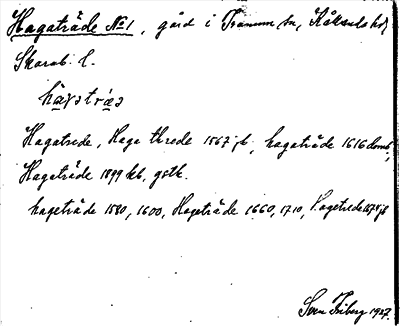 Hagaträde No 1, gård i Tranum sn, Kållands hd,
Skarab. l.
Hagatrede, Haga threde 1567 jb, hageträde 1616 domb,
Hageträde 1899 kb, gstk.
hageträde 1580, 1600, Hageträde 1660, 1710, Hagetrede 1575 jb
Sven Friberg 1927.